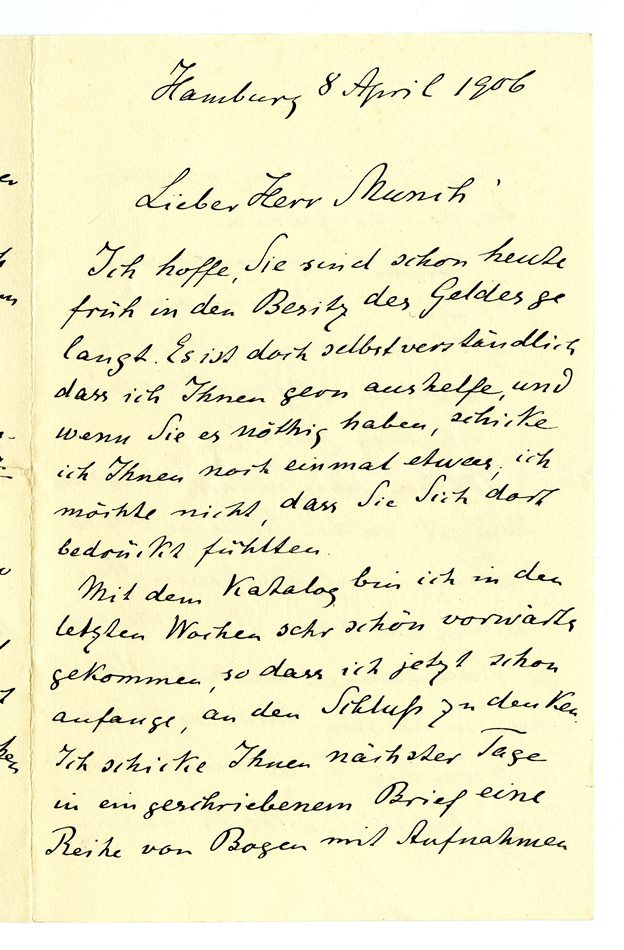 Hamburg 8 April 1906
Lieber Herr Munch
Ich hoffe, Sie sind schon heute
früh in den Besitz des Geldes ge
langt. Es ist doch selbstverständlich
dass ich Ihnen gern aushelfe, und
wenn Sie es nöthig haben, schicke
ich Ihnen noch einmal etwas, ich
möchte nicht, dass Sie Sich dort
bedrückt fühlten.
Mit dem Katalog bin ich in den
letzten Wochen sehr schön vorwärts
gekommen, so dass ich jetzt schon
anfange, an den Schluß zu denken.
Ich schicke Ihnen nächster Tage
in eingeschriebenem Brief eine
Reihe von Bogen mit Aufnahmen